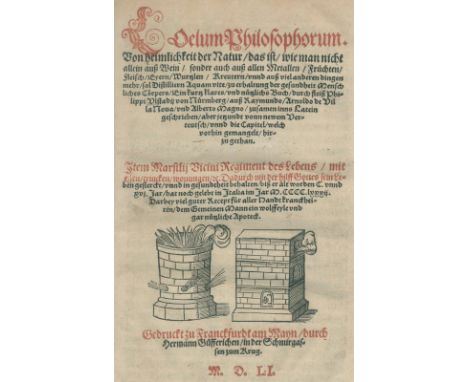 Coelum Philosophorum.
Von heimlichkeit der Natur / das ist / wie man nicht
allein auß Wein / sonder auch auß allen Metallen / Früchten /
Fleisch / Eyern / Wurtzlen / Kreutern / vnnd auß viel anderen dingen
mehr / sol Distillieren Aquam vite / zu erhaltung der gesundheit Mensch
liches Cörpers / Ein kurtz klares / vnd nützlichs Buch / durch fleiß Phi-
lippi Vlstadij von Nürmberg / auß Raymundo / Arnoldo de Vil
la Noua / vnd Alberto Magno / zusamen inns Latein
geschrieben / aber jetzunde vonn newem Ver-
teutsch / vnnd die Capitel / welch
vorhin gemangelt / hin-
zu gethan.
Item Marsilij Vicini Regiment des Lebens / mit
essen / trincken / wonungen / ꝛc. Dadurch mit der hilff Gottes sein Le-
ben gesterckt / vnnd in gesundtheit behalten / biß er alt worden C. vnnd
xvj. Jar / hat noch gelebt in Italia im Jar M. CCCC. lxxxij.
Darbey viel guter Recept für aller Handt kranckhei-
ten / dem Gemeinen Mann ein wolffeyle vnd
gar nützliche Apoteck.
Gedruckt zu Franckfurdt am Mayn / durch
Hermann Gülfferichen / in der Schnurgas-
sen zum Krug.
M. D. LI.